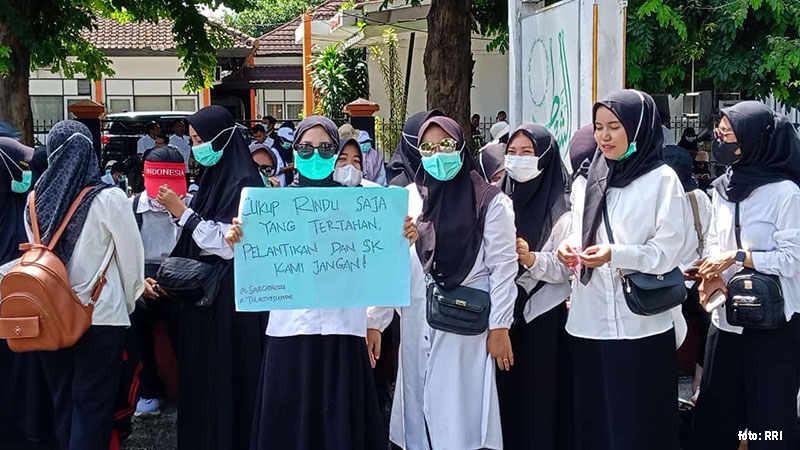 CUKUP RINDU SAJA
YANG TERTAHAN,
PELANTIKAN DAN SK
KAMI JANGAN!
INDONESIA
foto: RRI